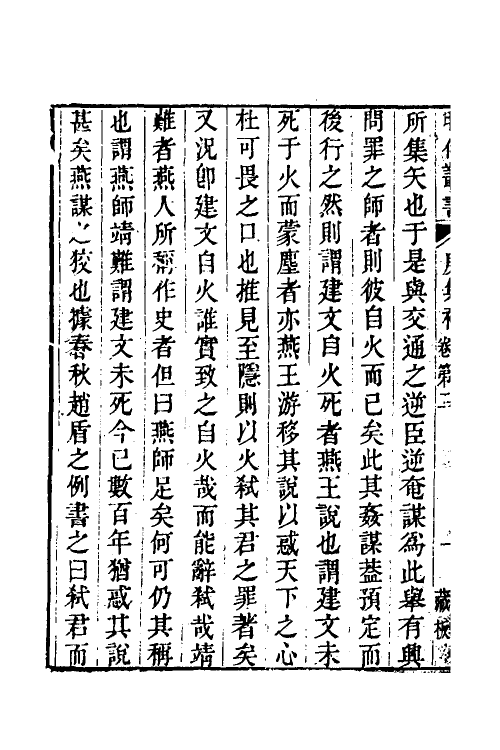 所集矢也于是與交通之逆臣逆奄謀為此舉有興
問罪之師者則彼自火而已矣此其姦謀葢預定而
後行之然則謂建文自火死者燕王說也謂建文未
死于火而蒙塵者亦燕王游移其說以惑天下之心
杜可畏之口也推見至隱則以火弑其君之罪著矣
又況卽建文自火誰實致之自火哉而能辭弑哉靖
難者燕人所作史者但曰燕師足矣何可仍其稱
也謂燕師靖難謂建文未死今已數百年猶惑其說
甚矣燕謀之狡也據春秋趙盾之例書之曰弑君而